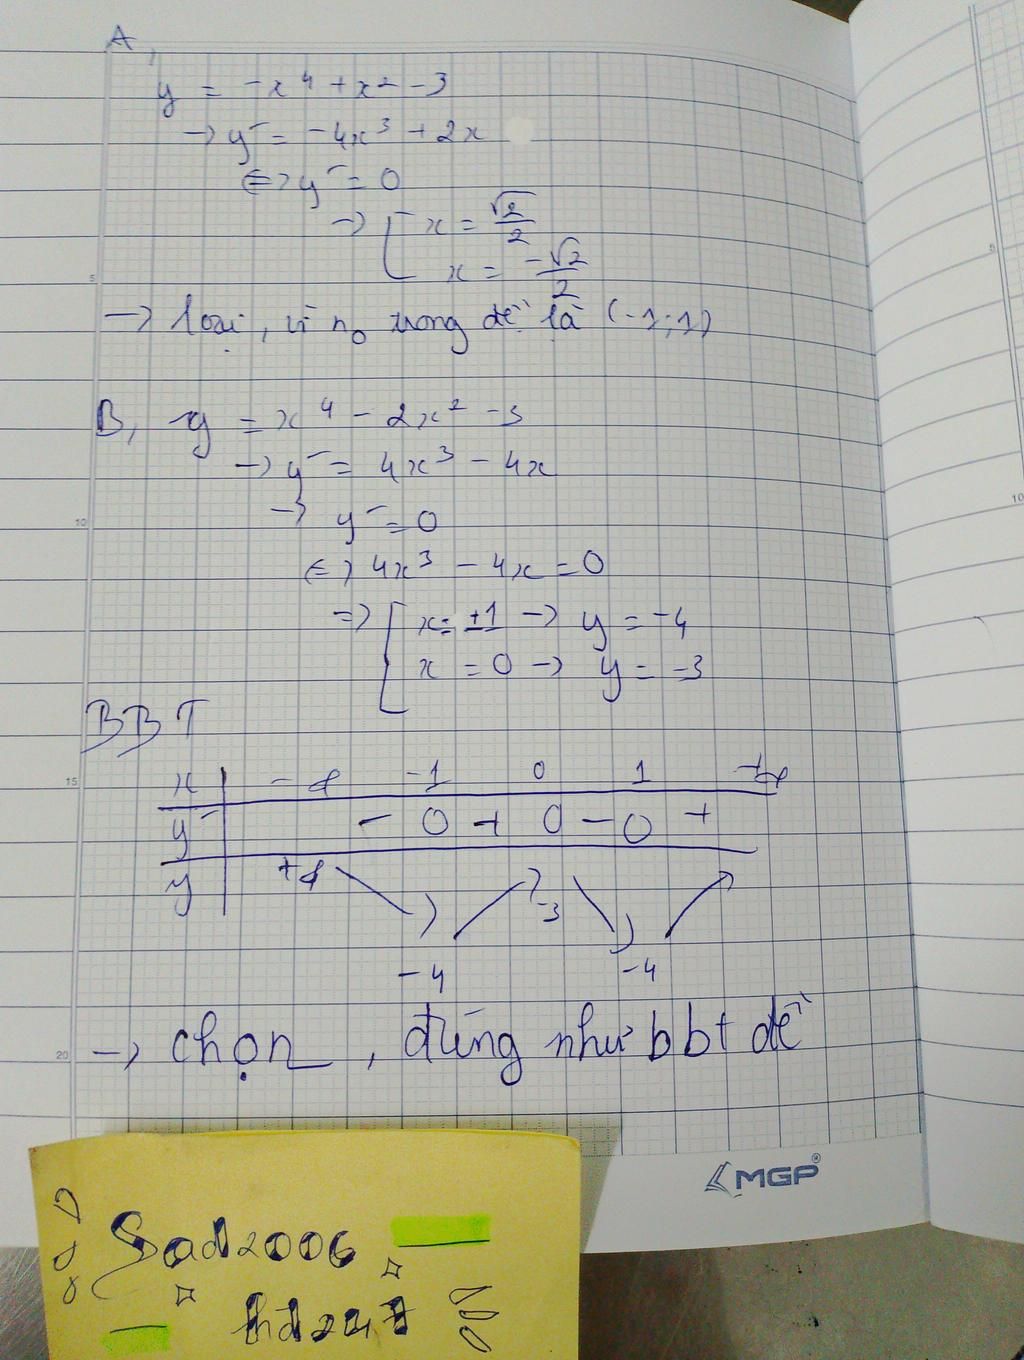 A,
y = -x⁴ + x² - 3
→ y⁻ = -4x³ + 2x
⇔ y⁻ = 0
→ [ x = √2/2
x = -√2/2
→ loại, vì n₀ trong đề là (-1;1)
B, y = x⁴ - 2x² - 3
→ y⁻ = 4x³ - 4x
→ y⁻ = 0
⇔ 4x³ - 4x = 0
=> [ x = ±1 → y = -4
x = 0 → y = -3
BBT
x | -∞ -1 0 1 +∞
y⁻ | - 0 + 0 - 0 +
y | +∞ ↘ ↗ -3 ↘ ↗
-4 -4
→ chọn, đúng như bbt đề
5
10
15
20
5
10
MGP®
Sad2006
hd247